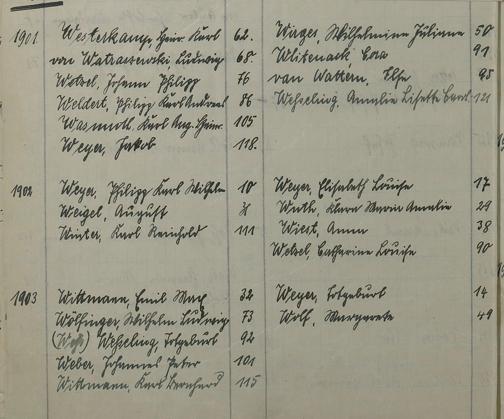 1901 Westerkamp, Heinr. Karl 62. Wüges, Wilhelmine Juliane 50
von Watraszewski, Ludwig 68. Witenack, 91
Wetzel, Johann Philipp 76 von Wattern, Else 95
Weldert, Philipp Karl Andreas 86 Wesseling, Amalie Lisette 121
Wasmuth, Karl Aug. Heinr. 105
Weyer, Jakob 118.
1902 Weyer, Philipp Karl Wilhelm 10 Weyer, Elisabeth Louise 17
Weigel, August Wuth, Klara Maria Amalie 29
Winter, Karl Reinhold 111 Wiest, Anna 38
Wetzel, Catharine Louise 90
1903 Wittmann, Emil Max 32 Weyer, Totgeburt 14
Wölfinger, Wilhelm Ludwig 73 Wolf, Margarete 49
(Wess) Wesseling, Totgeburt 92
Weber, Johannes Peter 101
Wittmann, Karl Bernhard 115